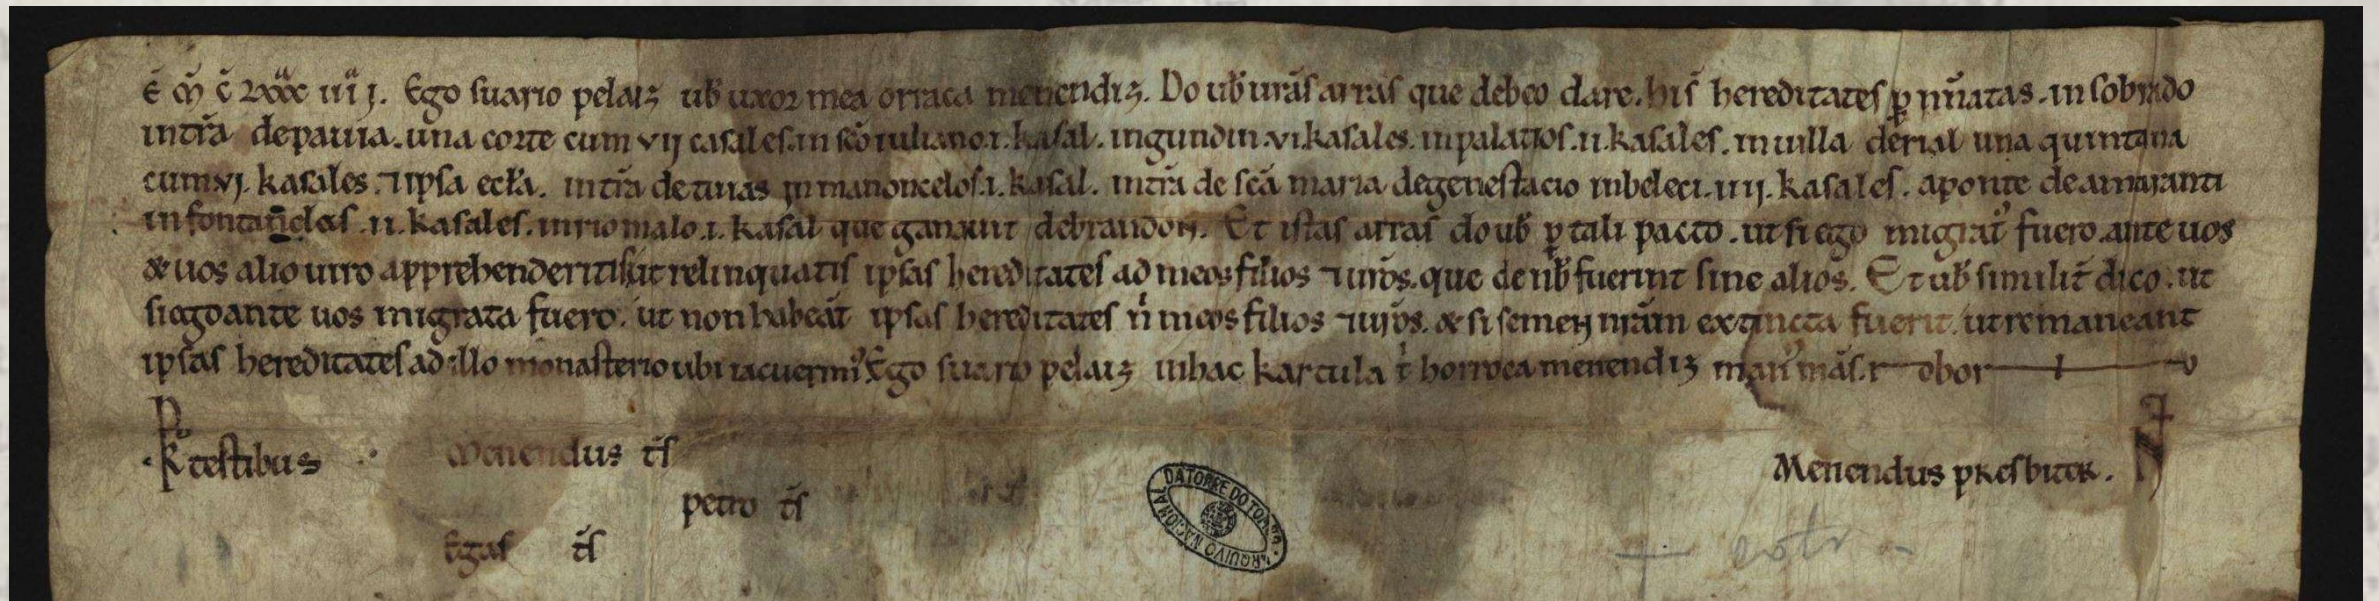 Ē M̄ C̄ LXXX IIII J. Ego suario pelaiz ub̄ uxor mea orraca menendiz. Do ub̄ ur̄as arras que debeo dare. his hereditates p̱ nūatas. in sobrado
in tr̄a de pauia. una corte cum vij casales. in sc̄o iuliano .i. kasal. in gundin .vi. kasales. in palatios .ii. kasales. in uilla de rial una quintana
cum vj. kasales. ⁊ ipsa eccl̄a. in tr̄a de tuias in manoncelos .i. kasal. in tr̄a de sc̄a maria de genestacio in beleci .iiij. kasales. a ponte de amaranti
in fontanelas .ii. kasales. in rio malo .i. kasal que ganauit de brandon. Et istas arras do ub̄ p̱ tali pacto. ut si ego migrat᾽ fuero. ante uos
& uos alio uiro apprehenderitis ut relinquatis ipsas hereditates ad meos filios ⁊ ur̄os. que de nb̄ fuerint sine alios. Et ub̄ similit̄ dico. ut
si ego ante uos migrata fuero. ut non habeāt ipsas hereditates n̄ meos filios ⁊ ur̄os. & si semen nr̄am extincta fuerit. ut remaneant
ipsas hereditates ad illo monasterio ubi iacuerim᾽. Ego suario pelaiz in hac kartula t̄ horroca menendiz man᾽ mās. r obor
testibus Menendus ts̄ Menendus presbiter.
petro ts̄
Egas ts̄
ARQUIVO NACIONAL DA TORRE DO TOMBO